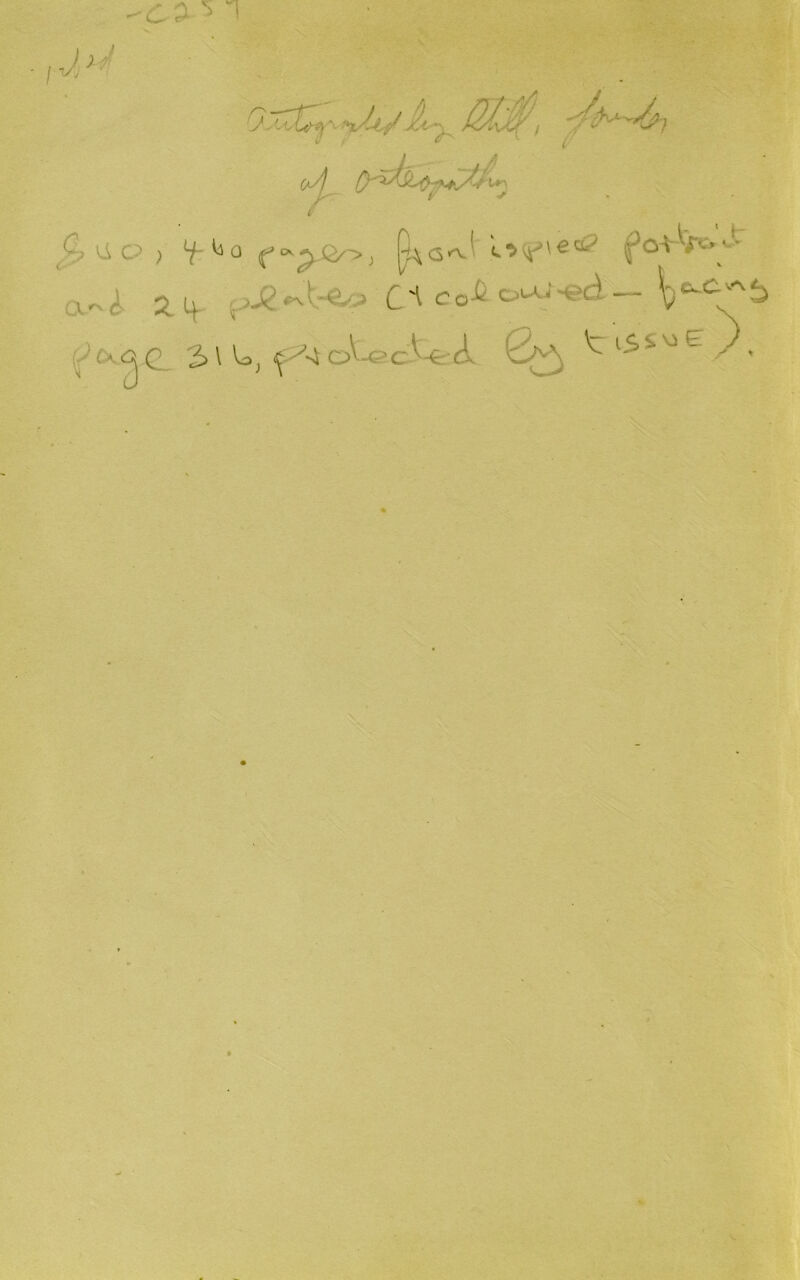 Autographed by Still, founder
of osteopathy
8vo, 460 pages, frontispiece portrait
and 24 plates (1 coloured — facing
page 316, protected by tissue).